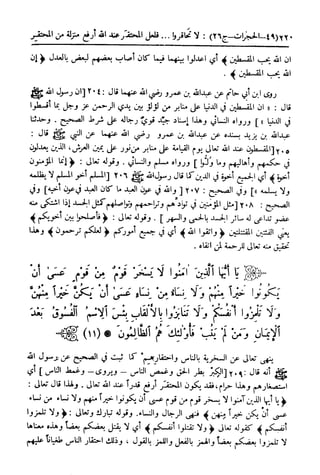 ٢٢٠ (٤٩-الحجرات-ج٢٦) : لا تحاقروا... فلعل المحتقر عند الله أرفع منزلة من المحتقر
ان الله يحب المقسطين ﴾ أي اعدلوا بينهما فيما كان أصاب بعضهم لبعض بالعدل ﴿إن
الله يحب المقسطين ﴾ .
روى ابن أبي حاتم عن عبدالله بن عمرو رضي الله عنهما قال : ٢٠٤ [ان رسول الله ﷺ
قال : « ان المقسطين في الدنيا على منابر من لؤلؤ بين يدي الرحمن عز وجل بما أقسطوا
في الدنيا »] ورواه النسائي وهذا إسناد جيّد قوي رجاله على شرط الصحيح . وحدثنا
عبدالله بن يزيد بسنده عن عبدالله بن عمرو رضي الله عنهما عن النبي ﷺ قال :
٢٠٥ [المقسطون عند الله تعالى يوم القيامة على منابر من نور على يمين العرش، الذين يعدلون
في حكمهم وأهاليهم وما ولُوا ] ورواه مسلم والنسائي . وقوله تعالى : ﴿ إنما المؤمنون
أخوة﴾ أي الجميع أخوة في الدين كما قال رسول الله ﷺ ٢٠٦ [المسلم أخو المسلم لا يظلمه
ولا يسلمه »] وفي الصحيح : ٢٠٧ [والله في عون العبد ما كان العبد في عون أخيه] وفي
الصحيح : ٢٠٨ [مثل المؤمنين في توادهم وتراحمهم وتواصلهم كمثل الجسد إذا اشتكى منه
عضو تداعى له سائر الجسد بالحمى والسهر ] . وقوله تعالى : ﴿ فأصلحوا بين أخويكم ﴾
يعني الفئتين المقتتلتين ﴿ واتقوا الله ﴾ أي في جميع أموركم ﴿ لعلكم ترحمون ﴾ وهذا
تحقيق منه تعالى للرحمة لمن اتقاه .
يَا أَيُّهَا الَّذِينَ آمَنُوا لَا يَسْخَرْ قَوْمٌ مِنْ قَوْمٍ عَسَى أَنْ
يَكُونُوا خَيْراً مِنْهُمْ وَلَا نِسَاءٌ مِنْ نِسَاءٍ عَسَى أَنْ يَكُنَّ خَيْراً مِنْهُنَّ
وَلَا تَلْمِزُوا أَنْفُسَكُمْ وَلَا تَنَابَزُوا بِالْأَلْقَابِ بِئْسَ الِاسْمُ الْفُسُوقُ بَعْدَ
الْإِيمَانِ وَمَنْ لَمْ يَتُبْ فَأُولَئِكَ هُمُ الظَّالِمُونَ (١١)
ينهى تعالى عن السخرية بالناس واحتقارهم كما ثبت في الصحيح عن رسول الله
ﷺ أنه قال : ٢٠٩ [الكبر بطر الحق وغمص الناس – ويروى – وغمط الناس ] أي
استصغارهم وهذا حرام، فقد يكون المحتقر أرفع قدراً عند الله تعالى . ولهذا قال تعالى :
﴿ يا أيها الذين آمنوا لا يسخر قوم من قوم عسى أن يكونوا خيراً منهم ولا نساء من نساء
عسى أن يكن خيراً منهن ﴾ فنهى الرجال والنساء. وقوله تبارك وتعالى : ﴿ ولا تلمزوا
أنفسكم ﴾ كقوله تعالى ﴿ ولا تقتلوا أنفسكم ﴾ أي لا يقتل بعضكم بعضاً وهذه معناها
لا تلمزوا بعضكم بعضاً والهمز بالفعل واللمز بالقول ، وذلك احتقار الناس طغياناً عليهم